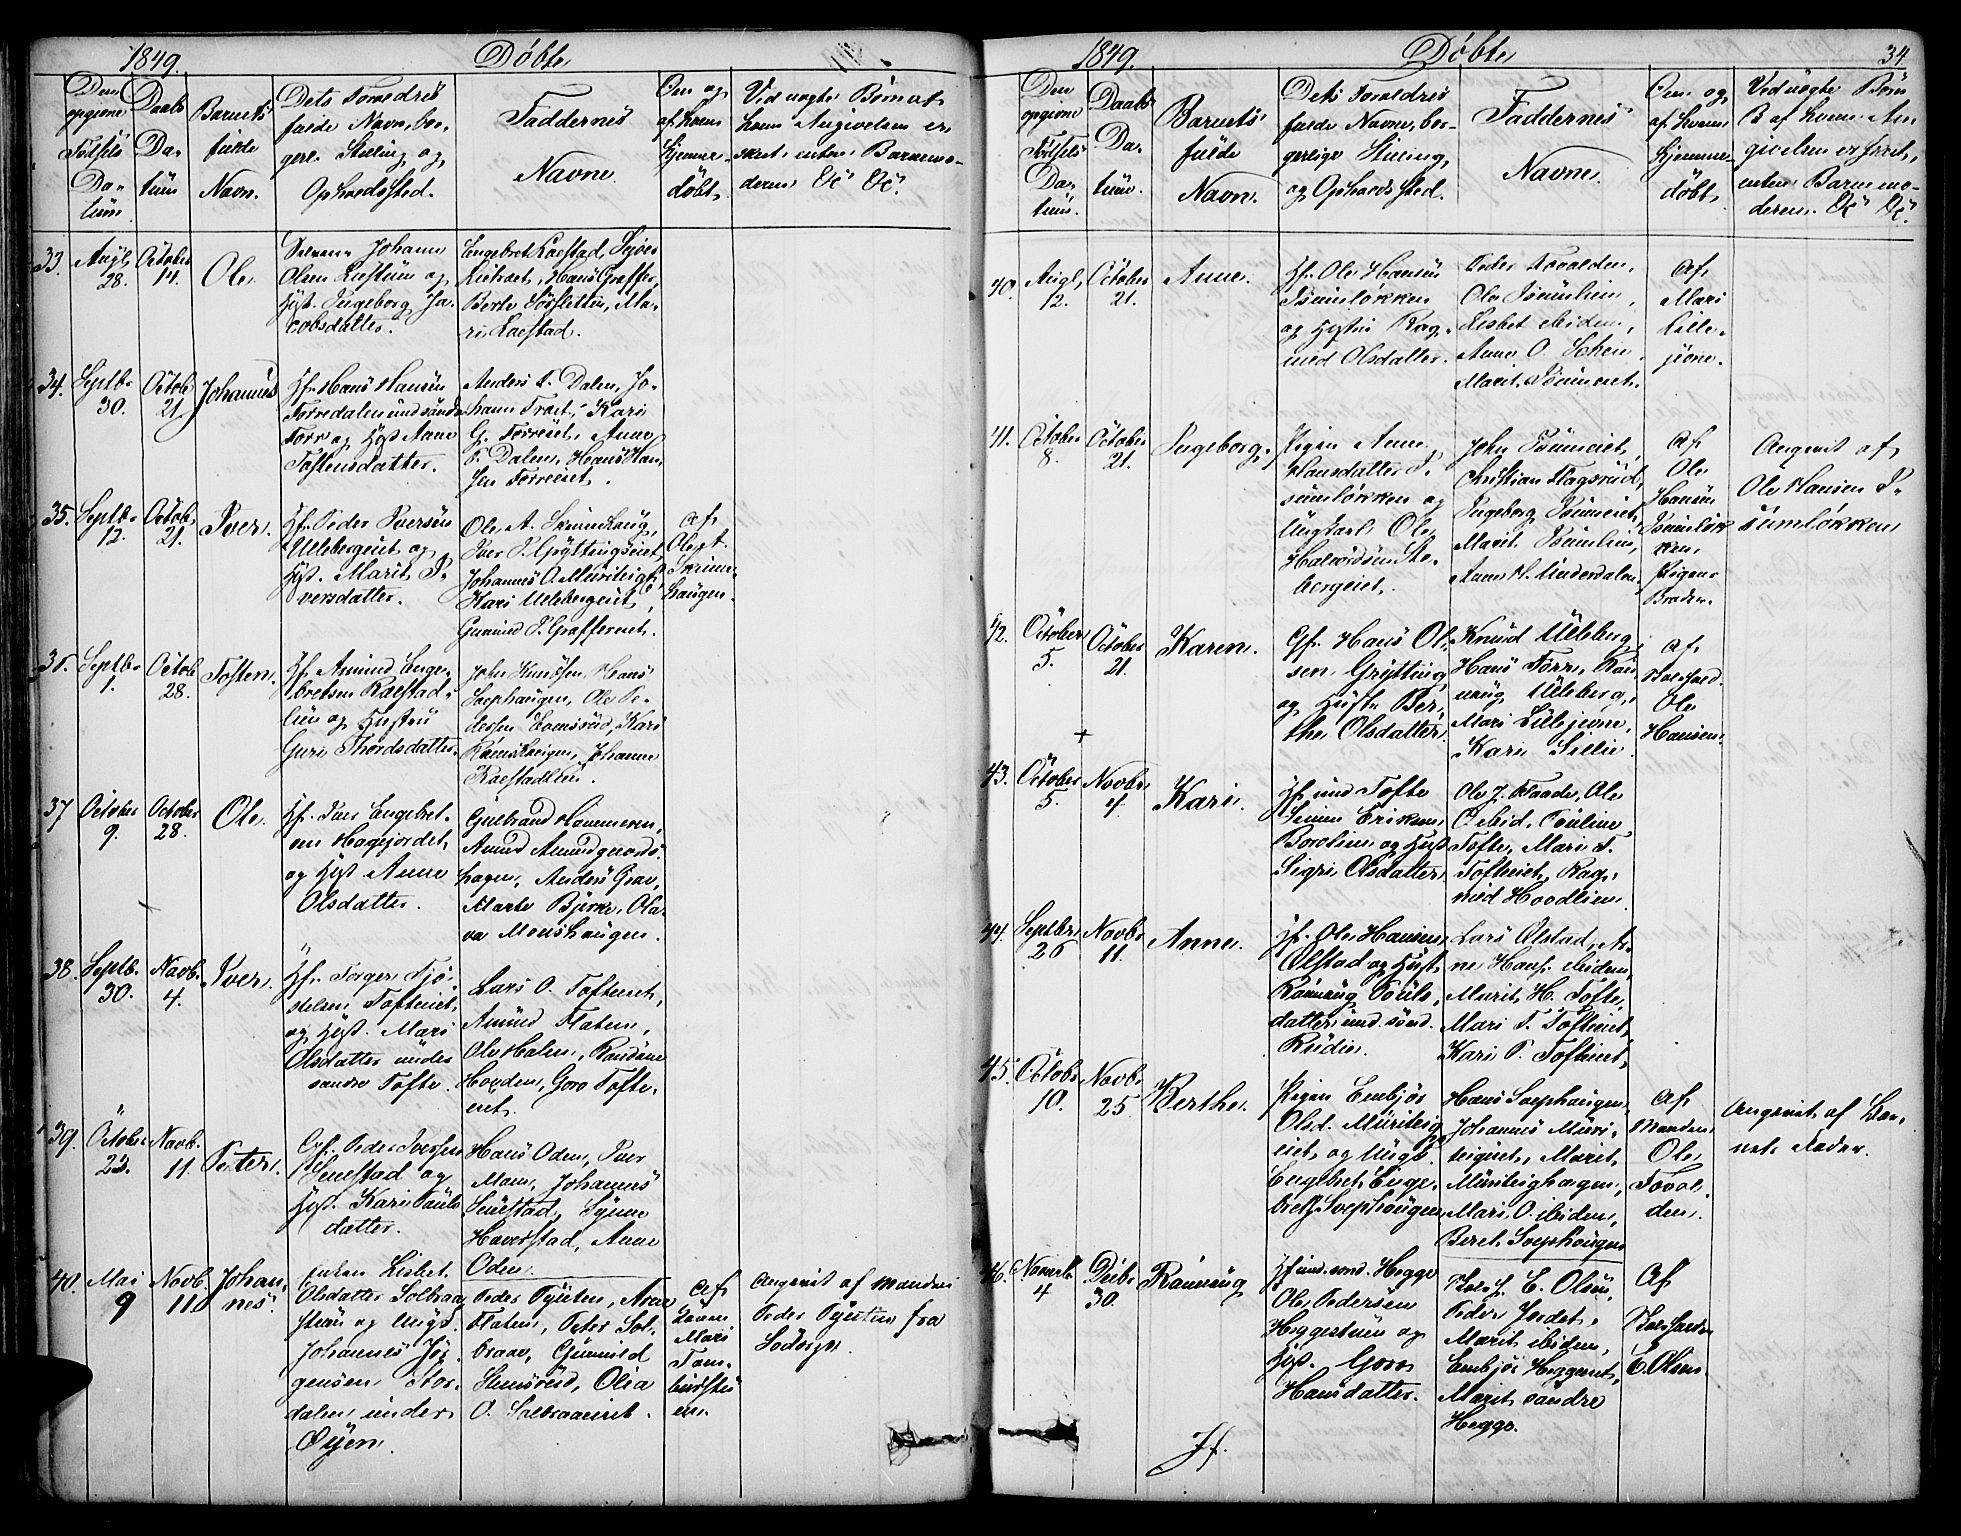 1849.
Døbte
Den
opgivne
Fødsels
Da-
tum
Daabs
Da-
tum
Barnets
fulde
Navn.
Dets Forældres
fulde Navn, bor-
gerl. Stilling og
Opholdssted.
Faddernes
Navne.
Om og
af hvem
hjemme-
døbt.
Ved uægte Børn af
hvem Angivelsen er
skeet, enten Barnemo-
deren &c &c.
33.
Aug.
28.
October
14.
Ole.
Johann
Olsen og
Hust. Ingeborg Ja-
cobsdatter.
Engebret Kaestad,
Hans Graffer,
Berte Ma-
ri Kaestad.
34.
Septbr
30.
Octob.
21.
Johannes
Hf. Hans Hansen
Forredalen und søndr
Forr og Hust Anne
Toftensdatter.
Anders P. Dalen, Jo-
hann Kari
G. Forreeiet, Anne
P. Dalen, Hans Han-
sen Forreeiet.
35.
Septbr
12.
Octob.
21.
Iver.
Hf. Peder Iversen
Ulebergeiet og
Hust. Marit I-
versdatter.
Ole A. Skrinshaug,
Iver P. Gryttingseiet,
Johannes O.
Kari Ulebergeiet,
Gunnild P. Graffereiet.
af
Ole
haugen.
36.
Septbr
1.
Octob.
28.
Toften.
Hf. Amund Enge-
bretsen Kaestad-
lien og Hustru
Guri Thordsdatter.
John Knudsen, Hans
Svephaugen, Ole Pe-
dersen Kari
Johanne
Kaestadlien.
37
October
9.
October
28.
Ole.
Hf. Iver Engebret-
sen Hagejordet
og Hust Anne
Olsdatter.
Gulbrand Hammeren,
Amund Amundgaards-
hagen, Anders Grav,
Marte Bjerke, Ola-
va Monshaugen.
38.
Septb.
30.
Novb.
4.
Iver.
Hf. Torger Tjø-
stelsen Tofteeiet,
og Hust. Mari
Olsdatter under
søndre Tofte.
Lars O. Tofteeiet,
Amund Flaten,
Ole Halen,
Goro Tofte-
eiet.
39.
Octobr
23.
Novb.
11.
Peter.
Gf. Peder Iversen
og
Hust. Kari Pauls-
datter.
Hans Oden, Iver
Moen, Johannes
Synne
Haverstad, Anne
Oden.
40.
Mai
9
Novb.
11.
Johan-
nes.
Enken Lisbet
Olsdatter Solbraa-
stuen og Ungk.
Johannes Jør-
gensen Stor-
dalen under
Øyen.
Peder Arne
Flaten, Peter Sol-
braae, Gunnild
Olea
O. Solbraaeeiet.
af
Mari
en.
Angivet af Manden
Peder fra
Sødorp.
1849.
Døbte
34
Den
opgivne
Fødsels
Da-
tum.
Daabs
Da-
tum.
Barnets
fulde
Navn.
Dets Forældres
fulde Navne, bor-
gerlige Stilling,
og Opholdssted.
Faddernes
Navne.
Om og
af hvem
hjemme-
døbt.
Ved uægte Børn
af hvem An-
givelsen er skeet,
enten Barnemo-
deren &c &c.
40.
Aug.
12.
October
21.
Anne.
Hf. Ole Hansen
Isumløkken
og Hustru Rag-
nild Olsdatter.
Peder Fovolden,
Ole Isumlien,
Lisbet ibidem,
Anne O.
Marit Isumeiet.
af
Mari
Lille-
jevne.
41.
October
8.
October
21.
Ingeborg.
Pigen Anne
Hansdatter I-
sumløkken og
Ungkarl Ole
Halvordsen Sto-
bergeiet.
John Isumeiet,
Christian Flagsrud,
Ingeborg Isumeiet,
Marit Isumlien,
Anne H. Underdalen.
af
Ole
Hansen
Isumløk-
ken,
Pigens
Broder.
Angivet af
Ole Hansen I-
sumløkken
42.
October
5.
October
21.
Karen.
Gf. Hans Ol-
sen Grytting
og Hustr. Ber-
the Olsdatter.
Knud Uleberg,
Hans Forr, Røn-
naug Uleberg,
Mari Lillejevne,
Kari Sillie
af
Ole
Hansen.
+
43.
October
5.
Novbr
4.
Kari.
Hf. und Tofte
Simen Eriksen
og Hust
Sigri Olsdatter.
Ole J. Faade, Ole
ibid, Pauline
Tofte, Mari T.
Tofteeiet, Rag-
nild Hoodlien.
44.
Septbr
26
Novbr
11.
Anne.
Hf. Ole Hansen
Olstad og Hust.
Rønnaug Pouls-
datter und. sønd.
Rudie.
Lars Olstad, A-
ne Hans. ibidem,
Marit H. Tofte,
Mari T. Tofteeiet,
Kari P. Tofteeiet.
45.
Octobr
10.
Novbr
25
Berthe.
Pigen Embjør
Olsd.
eiet og Ungk.
Engebret Enge-
brets. Svephaugen
Hans Svephaugen,
Johannes Muri-
teigeiet, Marit
Muriteighagen,
Mari O. ibidem,
Beret Svephaugen
af
Manden
Ole
Fovol-
den.
Angivet af Bar-
nets Fader.
46.
Novemb.
4
Decbr
30.
Rønnaug
Hf und. sønd. Hegge
Ole Pedersen
Heggestuen og
Hust. Goro
Hansdatter.
E. Olsen,
Peder Jordet,
Marit ibidem,
Embjør Heggeeiet,
Marit søndre
Hegge.
af
E. Olsen.